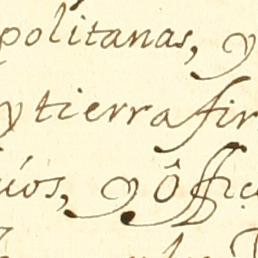 politanas, y
y tierra fir
uíos, y ôffiç